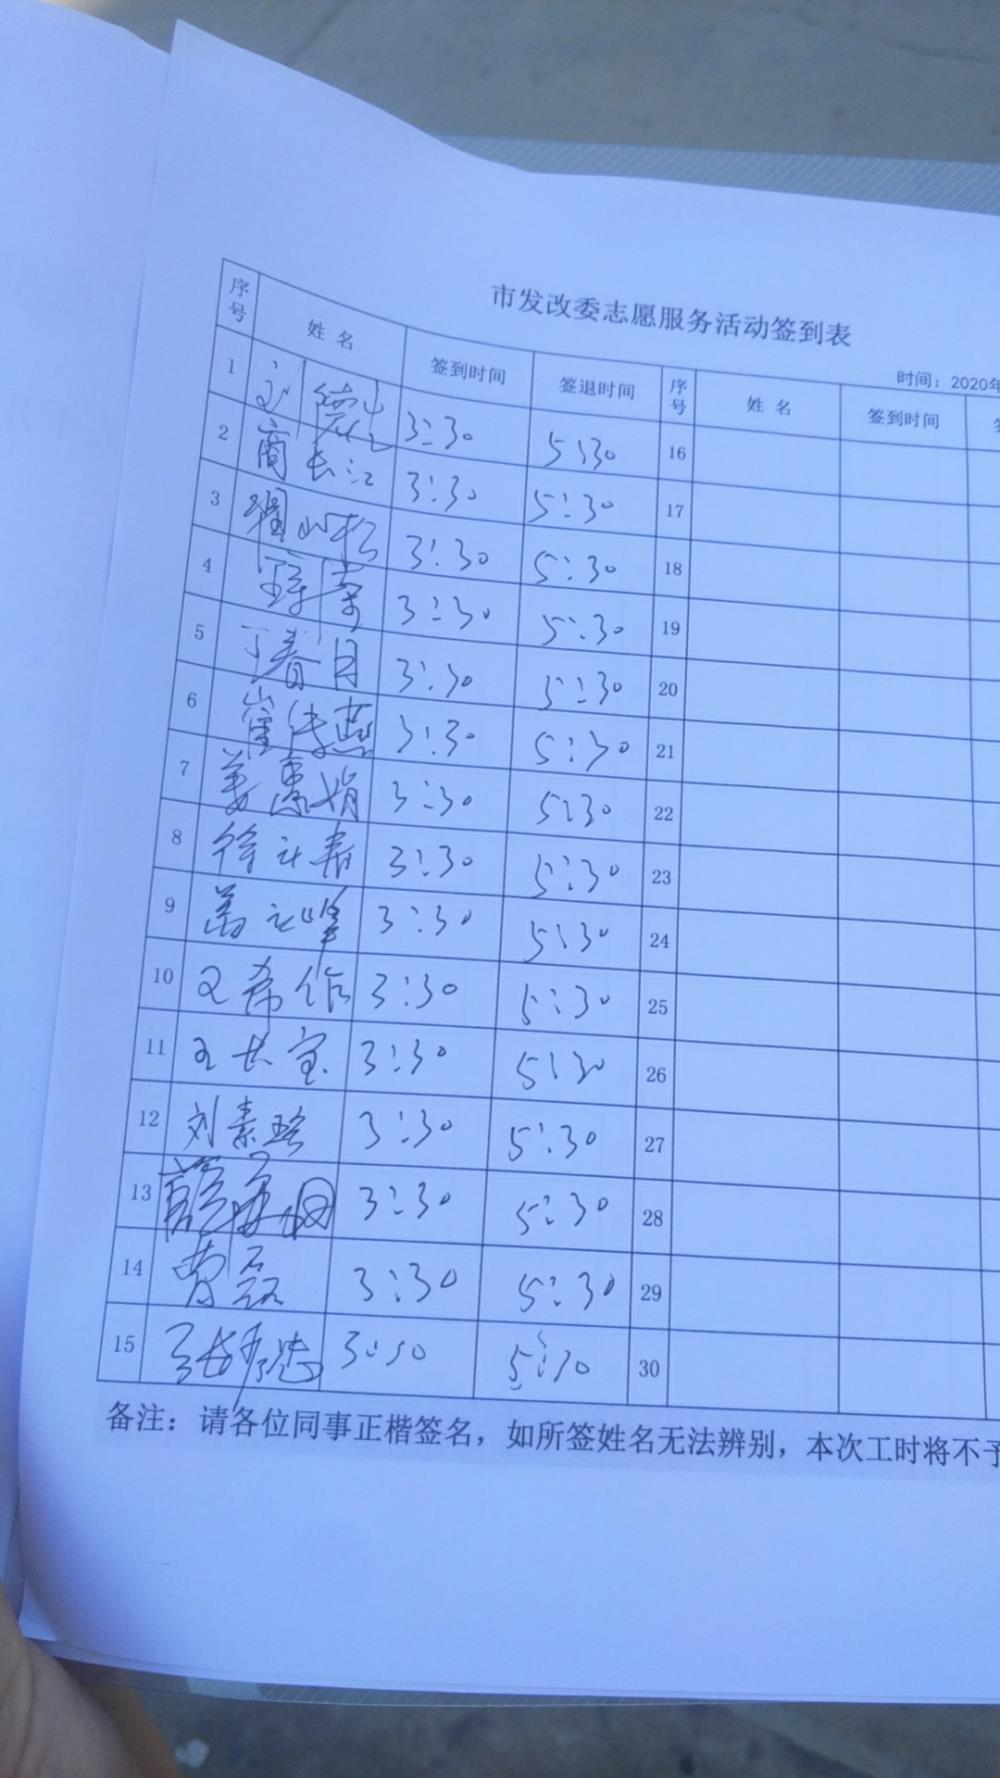 市发改委志愿服务活动签到表
时间：2020年
序号 姓名 签到时间 签退时间 序号 姓名 签到时间
1 3:30 5:30 16
2 商长江 3:30 5:30 17
3 3:30 5:30 18
4 3:30 5:30 19
5 丁春月 3:30 5:30 20
6 崔传燕 3:30 5:30 21
7 姜惠娟 3:30 5:30 22
8 徐 3:30 5:30 23
9 3:30 5:30 24
10 3:30 5:30 25
11 王长宝 3:30 5:30 26
12 刘素 3:30 5:30 27
13 3:30 5:30 28
14 曹磊 3:30 5:30 29
15 3:30 5:30 30
备注：请各位同事正楷签名，如所签姓名无法辨别，本次工时将不予